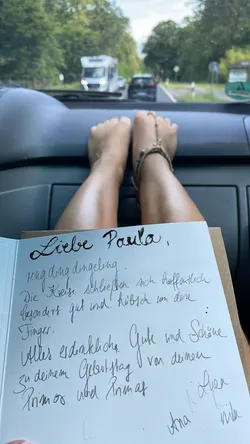 Liebe Paula,
ring ding dingeling.
Die Kreise schließen sich hoffentlich
besonders gut und hübsch um deine
Finger.
Alles erdenklich Gute und Schöne
zu deinem Geburtstag von deinen
Primos und Primas
Ana